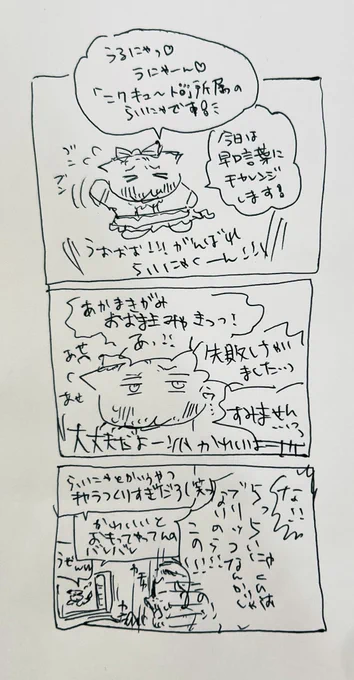 うるにゃっ♡
うにゃーん♡
「ニクキュート」所属の
らいにゃです!
今日は
早口言葉に
チャレンジ
します!
ブン
ブン
うおおお!!! がんばれ
らいにゃくーん!!
あかまきがみ
あおまきみゃきっっ!
あ、!!
あせ
あせ
失敗しちゃい
ました…
すみません…っ
大丈夫だよー!! かわいいよー!!!
らいにゃとかいうやつ
キャラつくりすぎだろ(笑)
かわいいと
おもってやってんの
バレバレ
な!!
らいにゃくんは
この